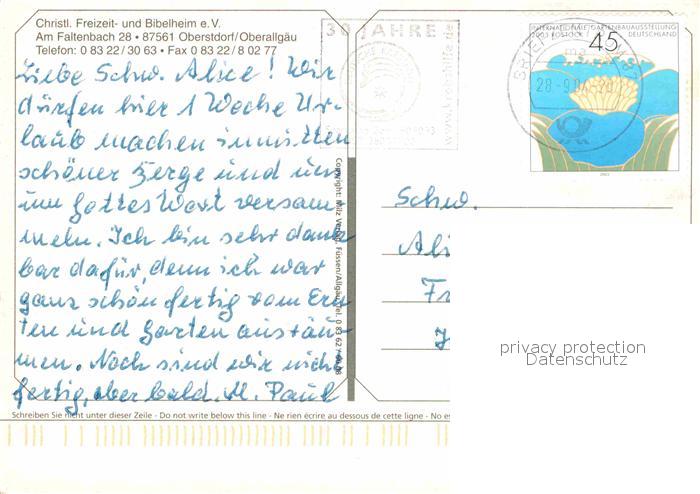 Christl. Freizeit- und Bibelheim e.V.
Am Faltenbach 28 • 87561 Oberstdorf/Oberallgäu
Telefon: 0 83 22/30 63 • Fax 0 83 22/8 02 77
Liebe Schw. Alice! Wir
dürfen hier 1 Woche Ur-
laub machen inmitten
schöner Berge und uns
um Gottes Wort versam
meln. Ich bin sehr dank
bar dafür, denn ich war
ganz schön fertig vom Ern
ten und Garten ausräu
men. Noch sind wir nicht
fertig, aber bald. M. Paul
Schreiben Sie nicht unter dieser Zeile - Do not write below this line - Ne rien écrire au dessous de cette ligne - No es
Copyright: Milz Verlag, Füssen/Allgäu, Tel. 0 83 62
30 JAHRE
INTERNATIONALE GARTENBAUAUSSTELLUNG
2003 ROSTOCK DEUTSCHLAND
45
BRIEF
28.-9.0
Schw.
Ali
Fr
privacy protection
Datenschutz